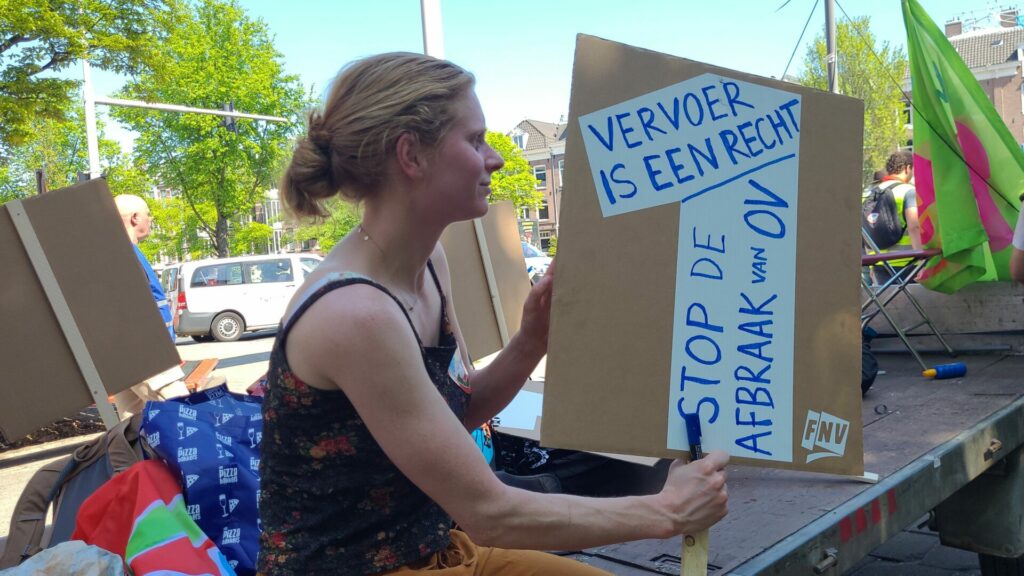 VERVOER
IS EEN RECHT
STOP DE
AFBRAAK VAN OV
FNV
PIZZA